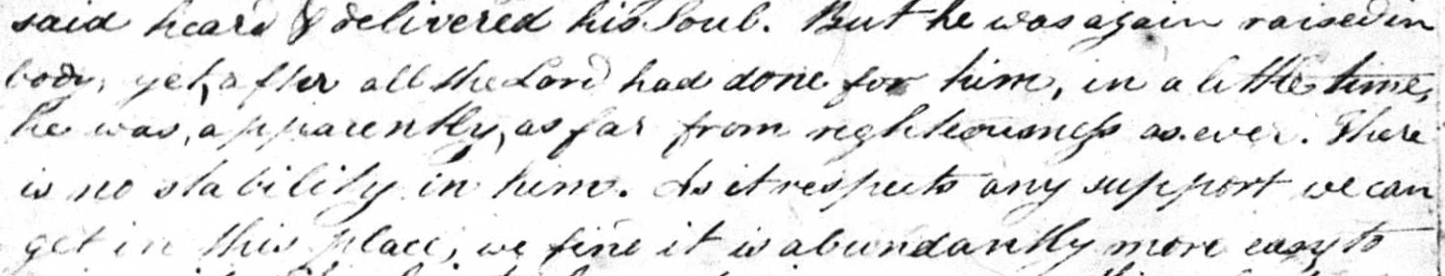 said heard & delivered his soul. But he was again raised in
body, yet, after all the Lord had done for him, in a little time,
he was, apparently, as far from righteousness as ever. There
is no stability in him. As it respects any support we can
get in this place, we find it is abundantly more easy to